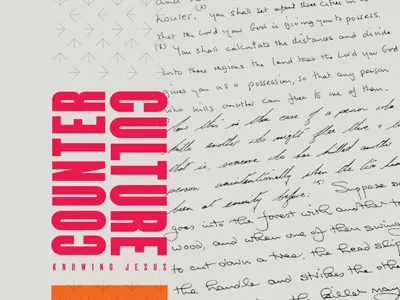 houses, (3) you shall set apart three cities in
that the Lord your God is giving you to possess.
(3) You shall calculate the distances and divide
into three regions the land that the Lord your God
gives you as a possession, so that any person
who kills another can flee to one of them.
Now this is the case of a person who
kills another who might flee there &
that is, someone who has killed another
person unintentionally when the two
been at enmity before: (5) Suppose
goes into the forest with another to
wood, and when one of them swings
to cut down a tree, the head slips
the handle and strikes the other
the killer may
COUNTER
CULTURE
KNOWING JESUS